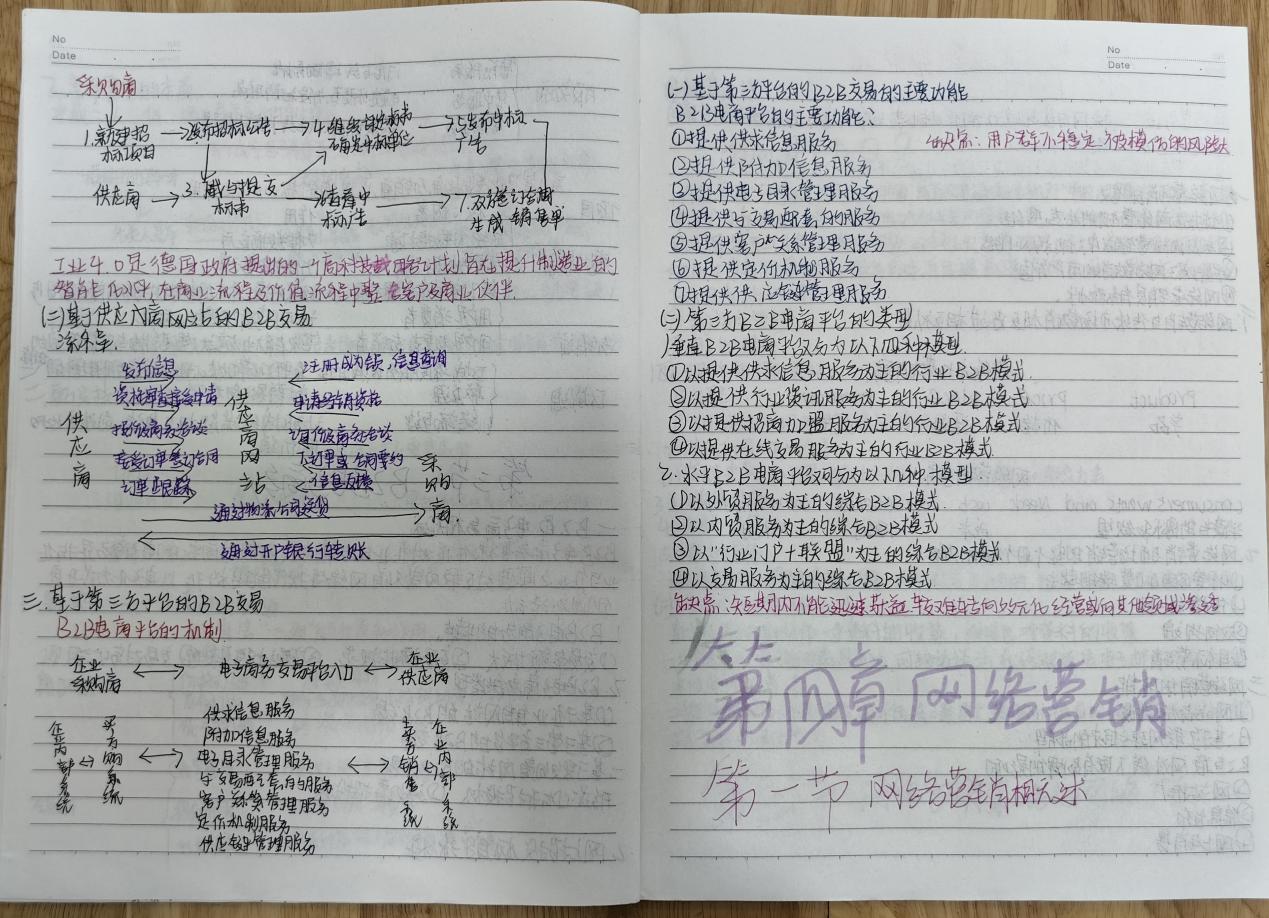 No
Date
采购商
1.新建招标项目
2.发布招标公告
4.继续
标书
确定中标单位
5.发布中标
公告
供应商
3.
与提交
标书
6.查看中
标公告
7.双方签订合同
生成销售单
工业4.0是德国政府提出的一个高科技战略计划,旨在提升制造业的
智能化水平,在商业流程及价值流程中整合客户及商业伙伴.
(二)基于供应商网站的B2B交易
流程.
发布信息
注册成为会员,信息查询
资格审查接受申请
申请经销资格
报价及商务洽谈
询价及商务洽谈
接受订单签订合同
下订单或合同要约
订单跟踪
信息反馈
供应商
供应商网站
采购商
通过物流公司送货
通过开户银行转账
三.基于第三方平台的B2B交易
B2B电商平台的机制.
企业
采购商
电子商务交易平台入口
企业
供应商
企业内部系统
买方购系统
供求信息服务
附加信息服务
电子目录管理服务
与交易配套的服务
客户关系管理服务
定价机制服务
供应链管理服务
卖方销售系统
企业内部系统
No
Date
(一)基于第三方平台的B2B交易的主要功能
B2B电商平台的主要功能?
①提供供求信息服务
缺点:用户若不稳定,被模仿的风险大
②提供附加信息服务
③提供电子目录管理服务
④提供与交易配套的服务
⑤提供客户关系管理服务
⑥提供定价机制服务
⑦提供供应链管理服务
(二)第三方B2B电商平台的类型
1垂直B2B电商平台又分为以下四种模型.
①以提供供求信息服务为主的行业B2B模式.
②以提供行业资讯服务为主的行业B2B模式
③以提供招商加盟服务为主的行业B2B模式
④以提供在线交易服务为主的行业B2B模式
2.水平B2B电商平台可分为以下几种模型
①以外贸服务为主的综合B2B模式
②以内贸服务为主的综合B2B模式
③以“行业门户+联盟”为主的综合B2B模式
④以交易服务为主的综合B2B模式
缺点:短期内不能迅速获益,较难转向多元化经营或向其他领域渗透
第四章 网络营销
第一节 网络营销概述